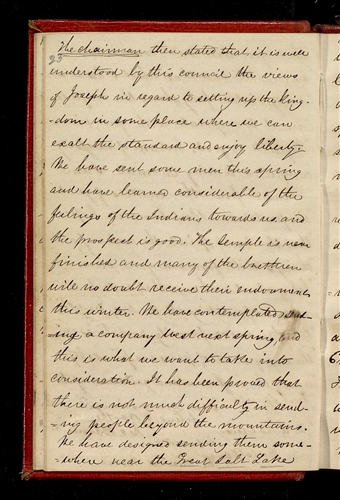 The chairman then stated that it is well
23
understood by this council the views
of Joseph in regard to setting up the king-
-dom in some place where we can
exalt the standard and enjoy liberty.
We have sent some men this spring
and have learned considerable of the
feelings of the Indians towards us and
the prospect is good. The Temple is near
finished and many of the brethren
will no doubt receive their endowment
this winter. We have contemplated send-
-ing a company west next spring, and
this is what we want to take into
consideration. It has been proved that
there is not much difficulty in send-
-ing people beyond the mountains.
We have designed sending them some-
-where near the Great Salt Lake